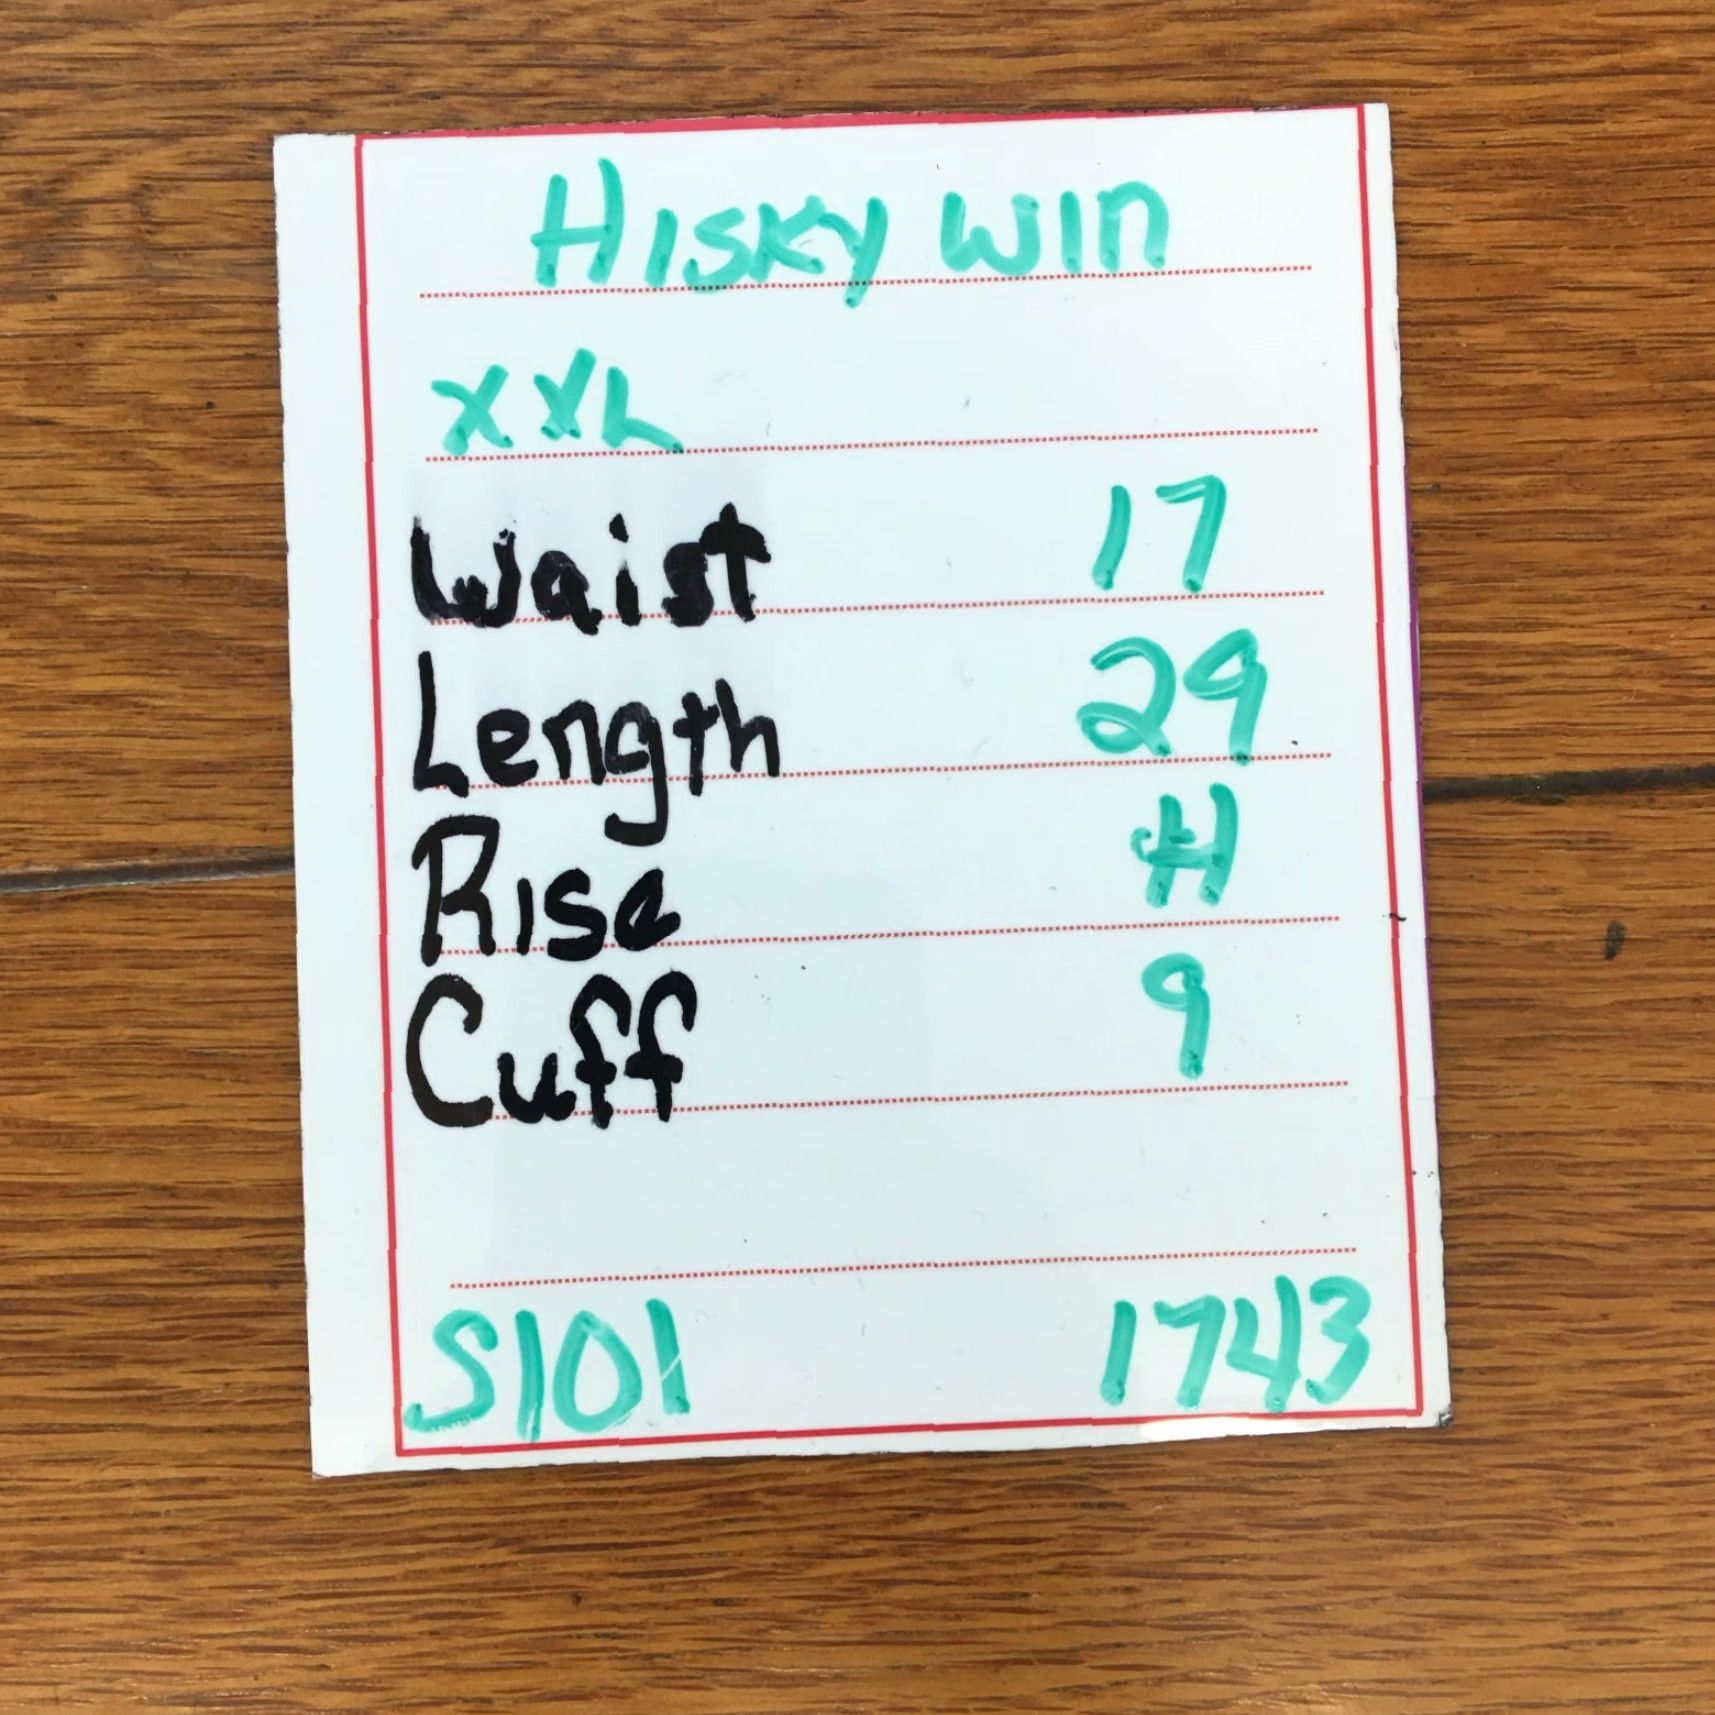 HISKY WIN
XXL
Waist 17
Length 29
Rise H
Cuff 9
S101 1743